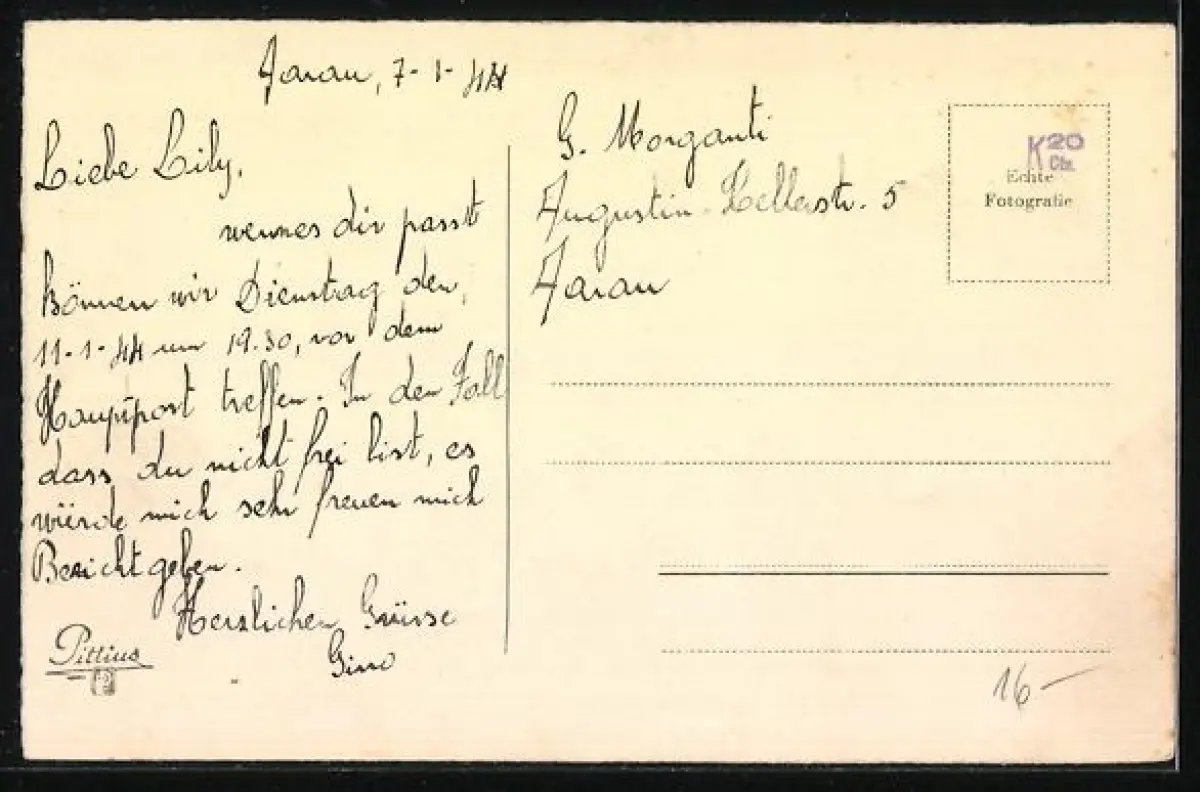 Aarau, 7-1-44
Liebe Lily,
wennes dir passt
können wir Dienstag den,
11-1-44 um 19.30, vor dem
Hauptpost treffen. In den Fall
dass du nicht frei bist, es
würde mich sehr freuen mich
Bericht geben.
Herzlichen Grüsse
Gino
Pittius
G. Morganti
Augustin-Kellerstr. 5
Aarau
K 20
Cts.
Echte
Fotografie
16-